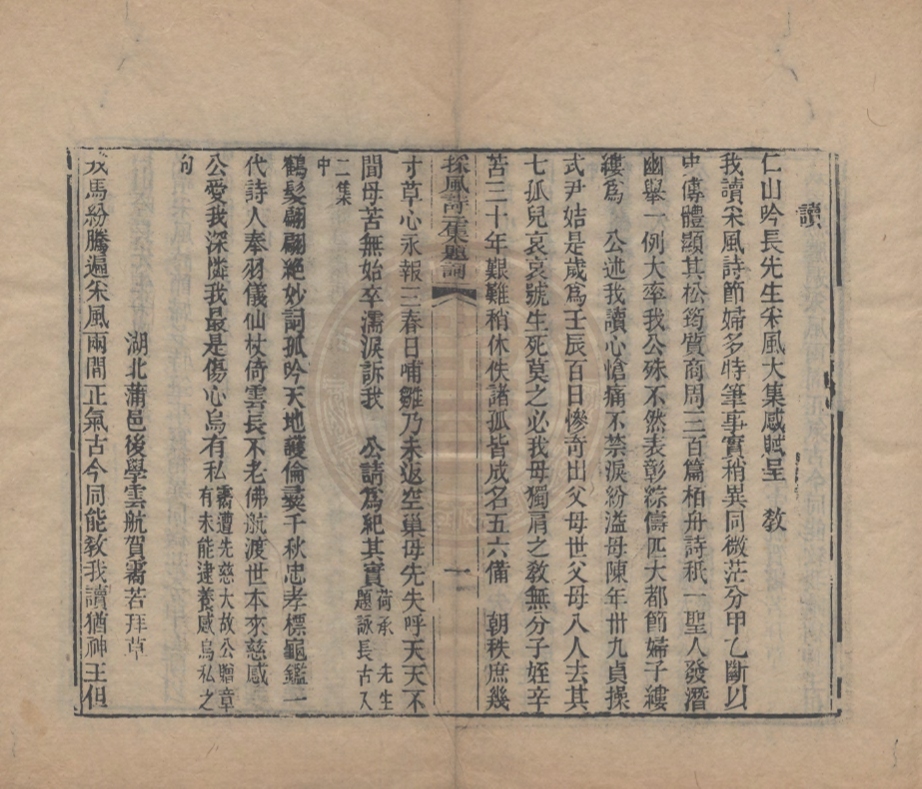 讀
仁山吟長先生采風大集感賦呈　教
我讀采風詩節婦多特筆事實稍異同微茫分甲乙斷以
史傳體顯其松筠質商周三百篇柏舟詩秖一聖人發潛
幽舉一例大率我公殊不然表彰綜儔匹大都節婦子縷
縷爲　公述我讀心愴痛不禁淚紛溢母陳年卅九貞操
式尹姞是歲爲壬辰百日慘奇出父母世父母八人去其
七孤兒哀哀號生死莫之必我母獨肩之教無分子姪辛
苦三十年艱難稍休佚諸孤皆成名五六備　朝秩庶幾
採風詩二集題詞　一
寸草心永報三春日哺雛乃未返空巢母先失呼天天不
聞母苦無始卒濡淚訴我　公請爲紀其實荷承　先生題詠長古入
二集中
鶴髮翩翩絕妙詞孤吟天地護倫彝千秋忠孝標龜鑑一
代詩人奉羽儀仙杖倚雲長不老佛航渡世本來慈感
公愛我深憐我最是傷心烏有私霱遭先慈大故公贈章有未能逮養感烏私之
句
湖北蒲邑後學雲航賀霱若拜草
戎馬紛騰遍采風兩間正氣古今同能教我讀猶神王但